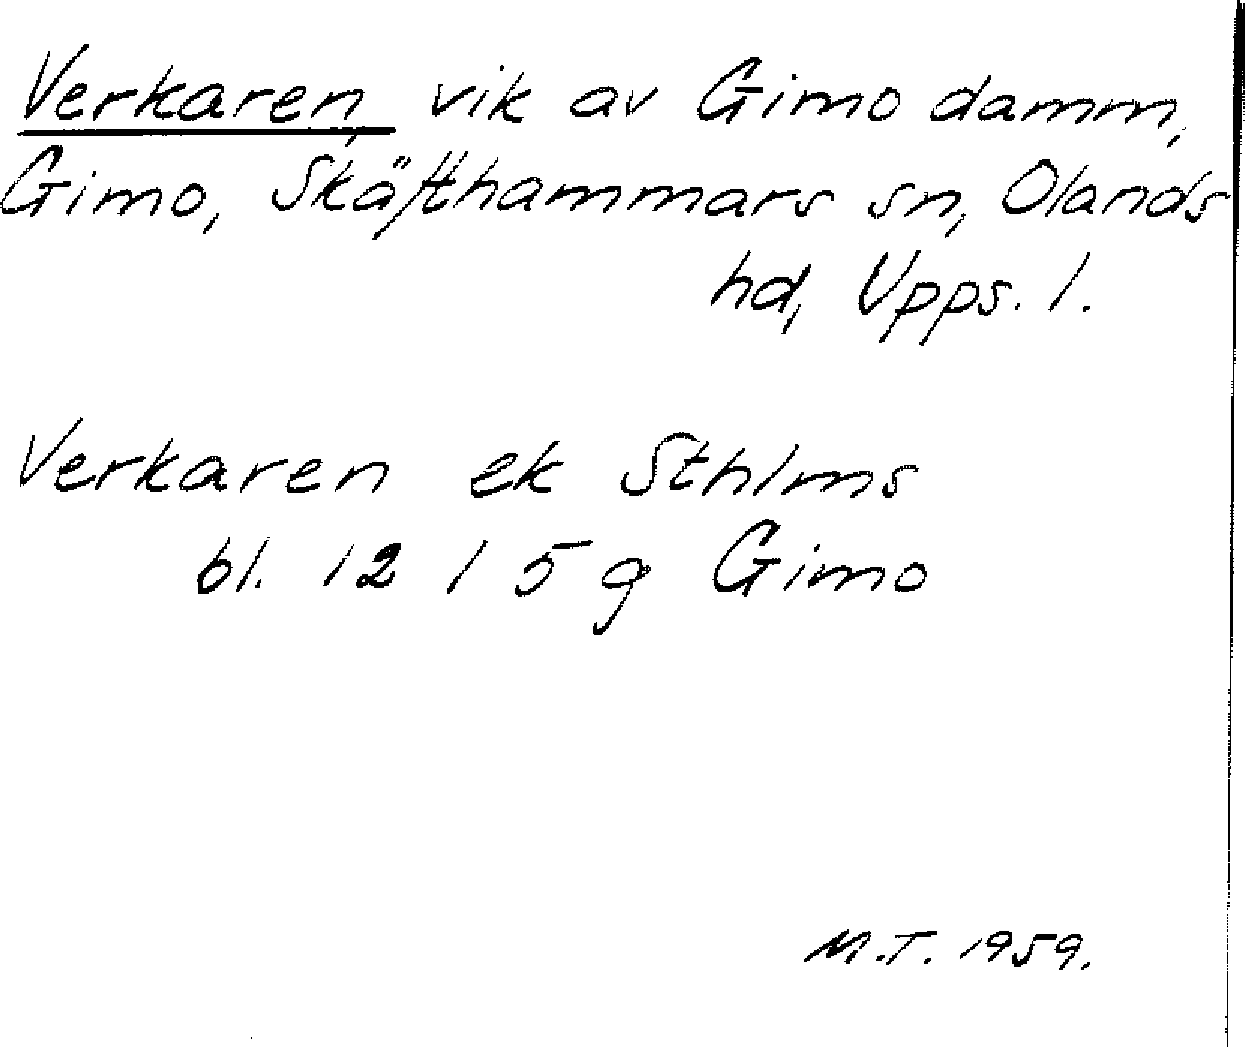 Verkaren, vik av Gimo damm,
Gimo, Skäfthammars sn, Olands
hd, Upps. l.
Verkaren ek Sthlms
bl. 12 I 5 g Gimo
M.T. 1959.